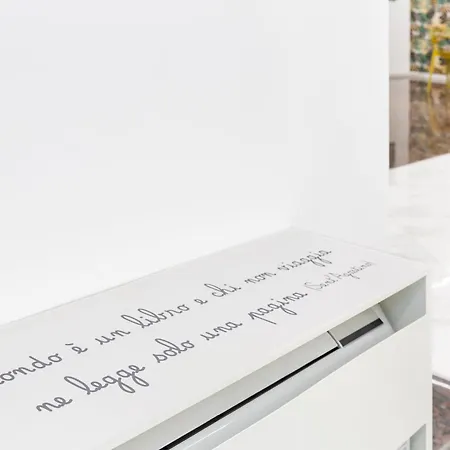 ondo è un libro e chi non viaggia
ne legge solo una pagina Sant'Agostino